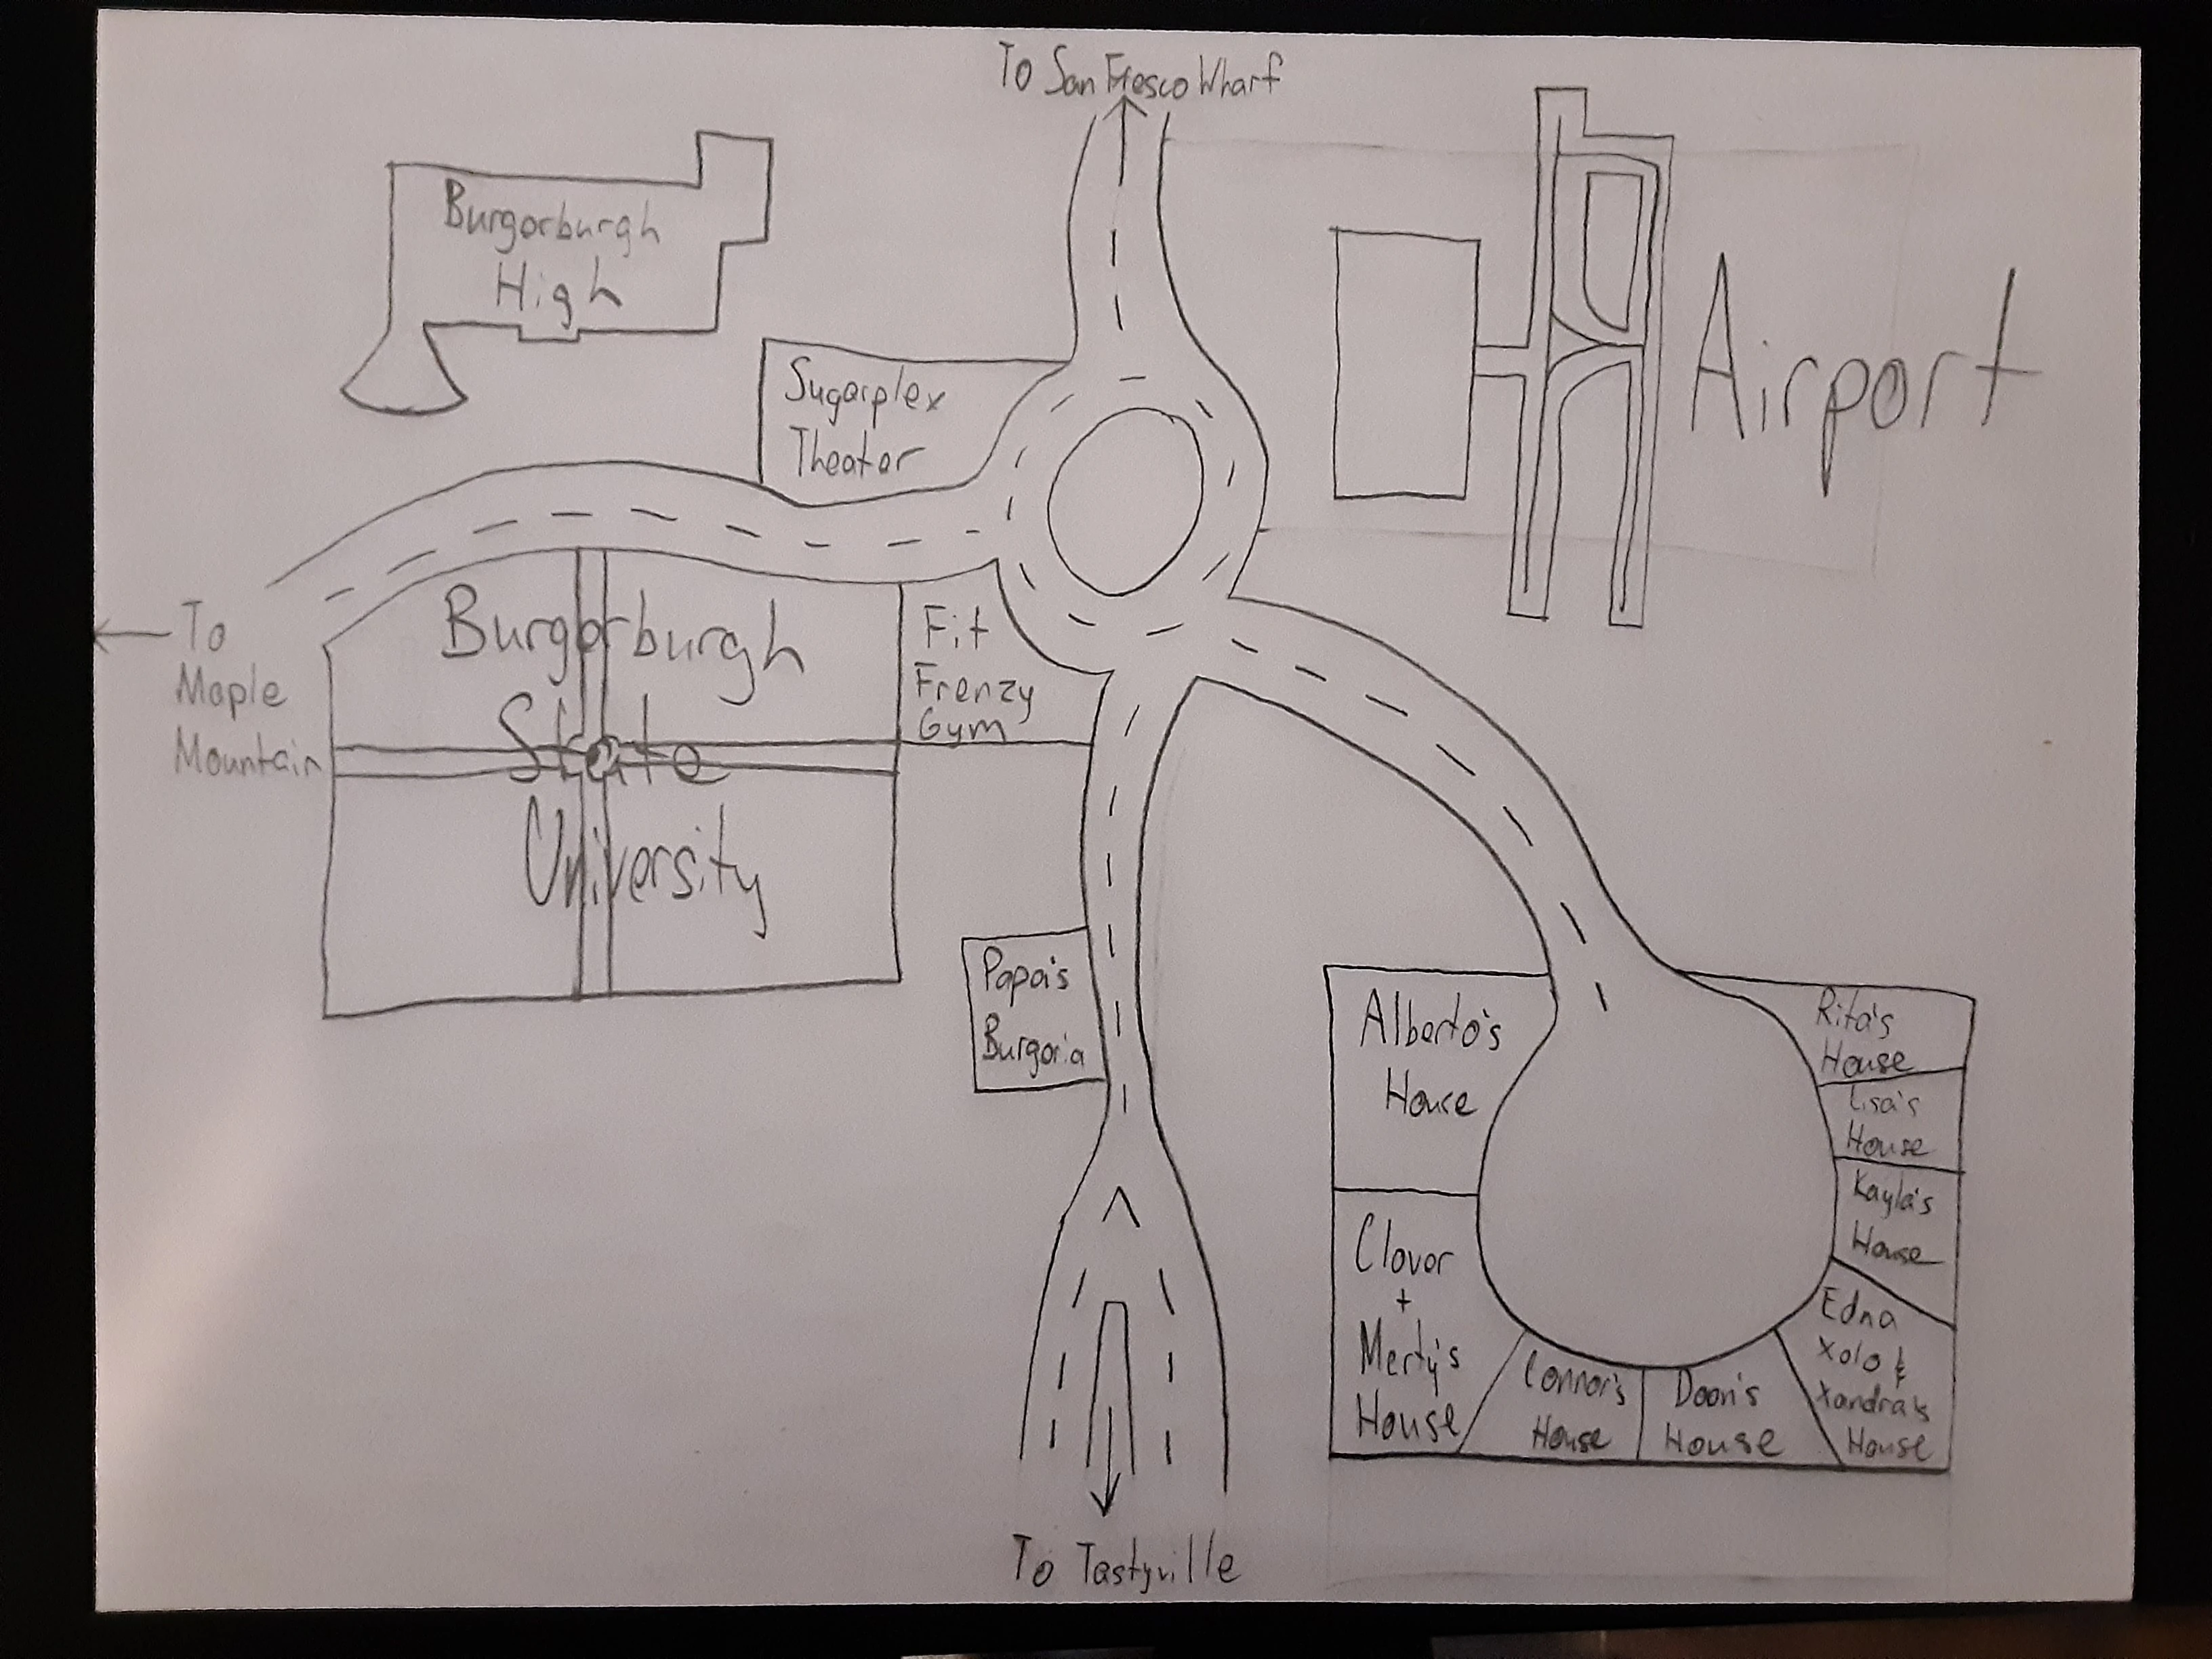 To San Fresco Wharf
Burgerburgh
High
Airport
Sugarplex
Theater
To
Maple
Mountain
Burgerburgh
State
University
Fit
Frenzy
Gym
Papa's
Burgeria
Alberto's
House
Clover
+
Merty's
House
Connor's
House
Doan's
House
Edna
Xolo &
Xandra's
House
Kayla's
House
Lisa's
House
Rita's
House
To Tastyville